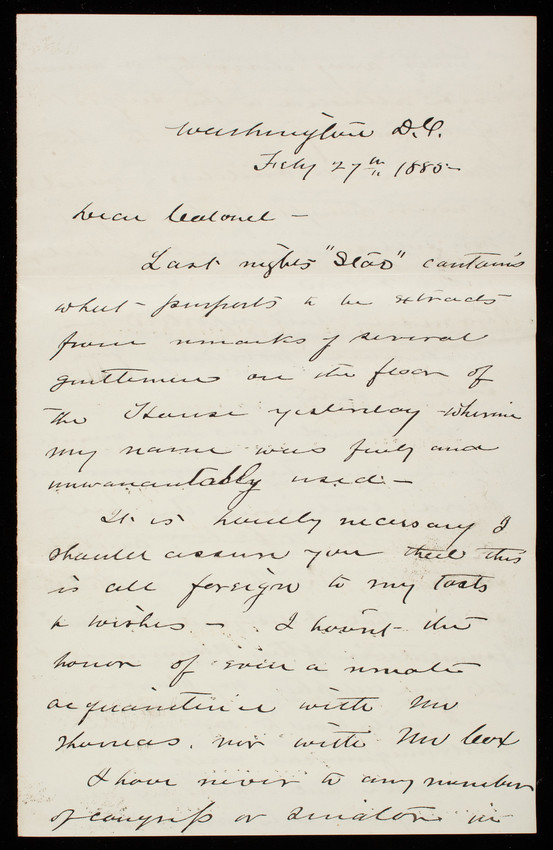 Washington D.C.
Feby 27th 1885
Dear Colonel —
Last nights "Star" contains
what purports to be extracts
from remarks of several
gentlemen on the floor of
the House yesterday wherein
my name was fully and
unwarrantably used —
It is hardly necessary I
should assure you that this
is all foreign to my tasts
& wishes — I hav'nt the
honor of even a remote
acquaintence with Mr
Thomas. nor with Mr Cox
I have never to any member
of congress or senator in